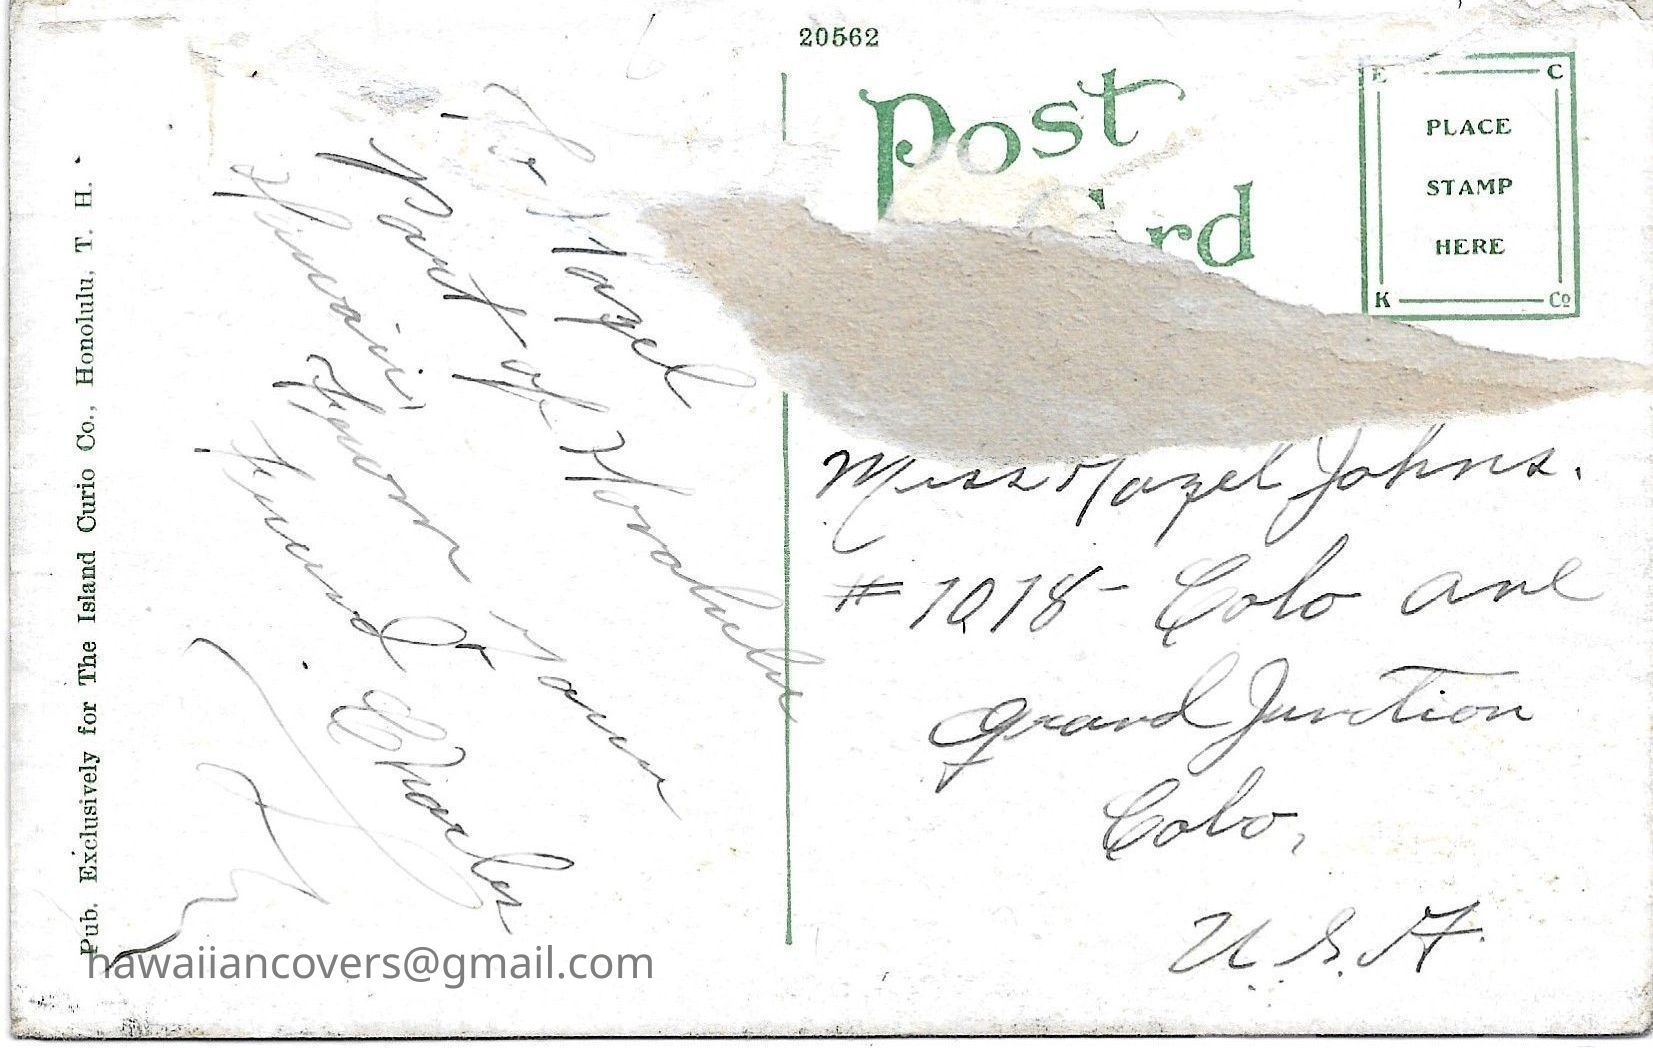 20562
Post
Card
E C
PLACE
STAMP
HERE
K Co
Pub. Exclusively for The Island Curio Co., Honolulu, T. H.
To Hazel
Part of Honolulu
Hiwaii,
From Your
Friend
Charles
Miss Hazel Johns.
# 1018 - Colo ave
Grand Junction
Colo,
U.S.A.
hawaiiancovers@gmail.com